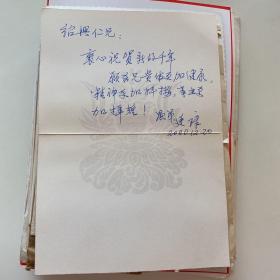 绍兴仁兄:
衷心祝贺新的千年
敬祝兄贵体更加健康,
精神更加抖擞,事业更
加辉煌!
2000.12.20